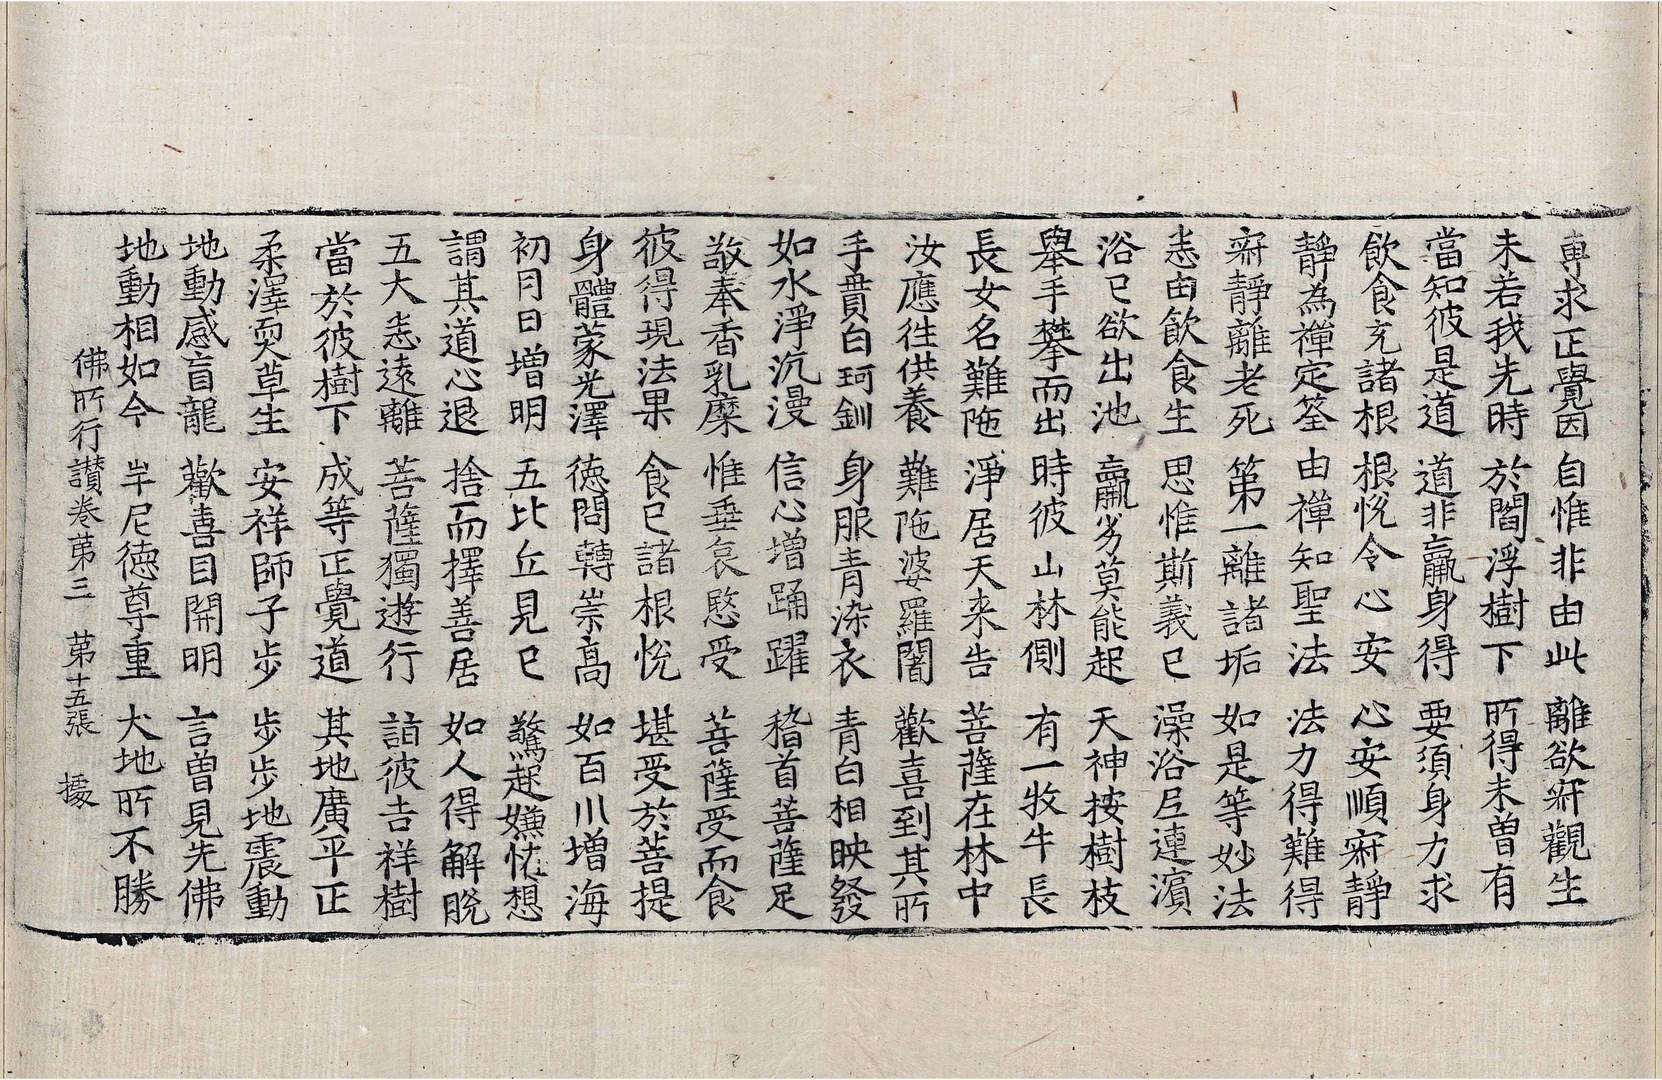 專求正覺因 自惟非由此 離欲𡧯觀生
未若我先時 於閻浮樹下 所得未曾有
當知彼是道 道非羸身得 要須身力求
飲食充諸根 根悅令心安 心安順𡧯靜
靜為禪定筌 由禪知聖法 法力得難得
𡧯靜離老死 第一離諸垢 如是等妙法
悉由飮食生 思惟斯義已 澡浴尼連濱
浴已欲出池 羸劣莫能起 天神按樹枝
舉手攀而出 時彼山林側 有一牧牛長
長女名難陁 淨居天来告 菩薩在林中
汝應往供養 難陁婆羅闍 歡喜到其所
手貫白珂釧 身服青染衣 青白相映發
如水淨沉漫 信心增踊躍 稽首菩薩足
敬奉香乳糜 惟垂哀愍受 菩薩受而食
彼得現法果 食已諸根悅 堪受於菩提
身體蒙光澤 德問轉崇高 如百川增海
初月日增明 五比丘見已 驚起嫌怪想
謂其道心退 捨而擇善居 如人得解脫
五大悉遠離 菩薩獨遊行 詣彼吉祥樹
當於彼樹下 成等正覺道 其地廣平正
柔澤耎草生 安祥師子步 步步地震動
地動感盲龍 歡喜目開明 言曾見先佛
地動相如今 牟尼德尊重 大地所不勝
佛所行讃卷苐三 苐十五張 據